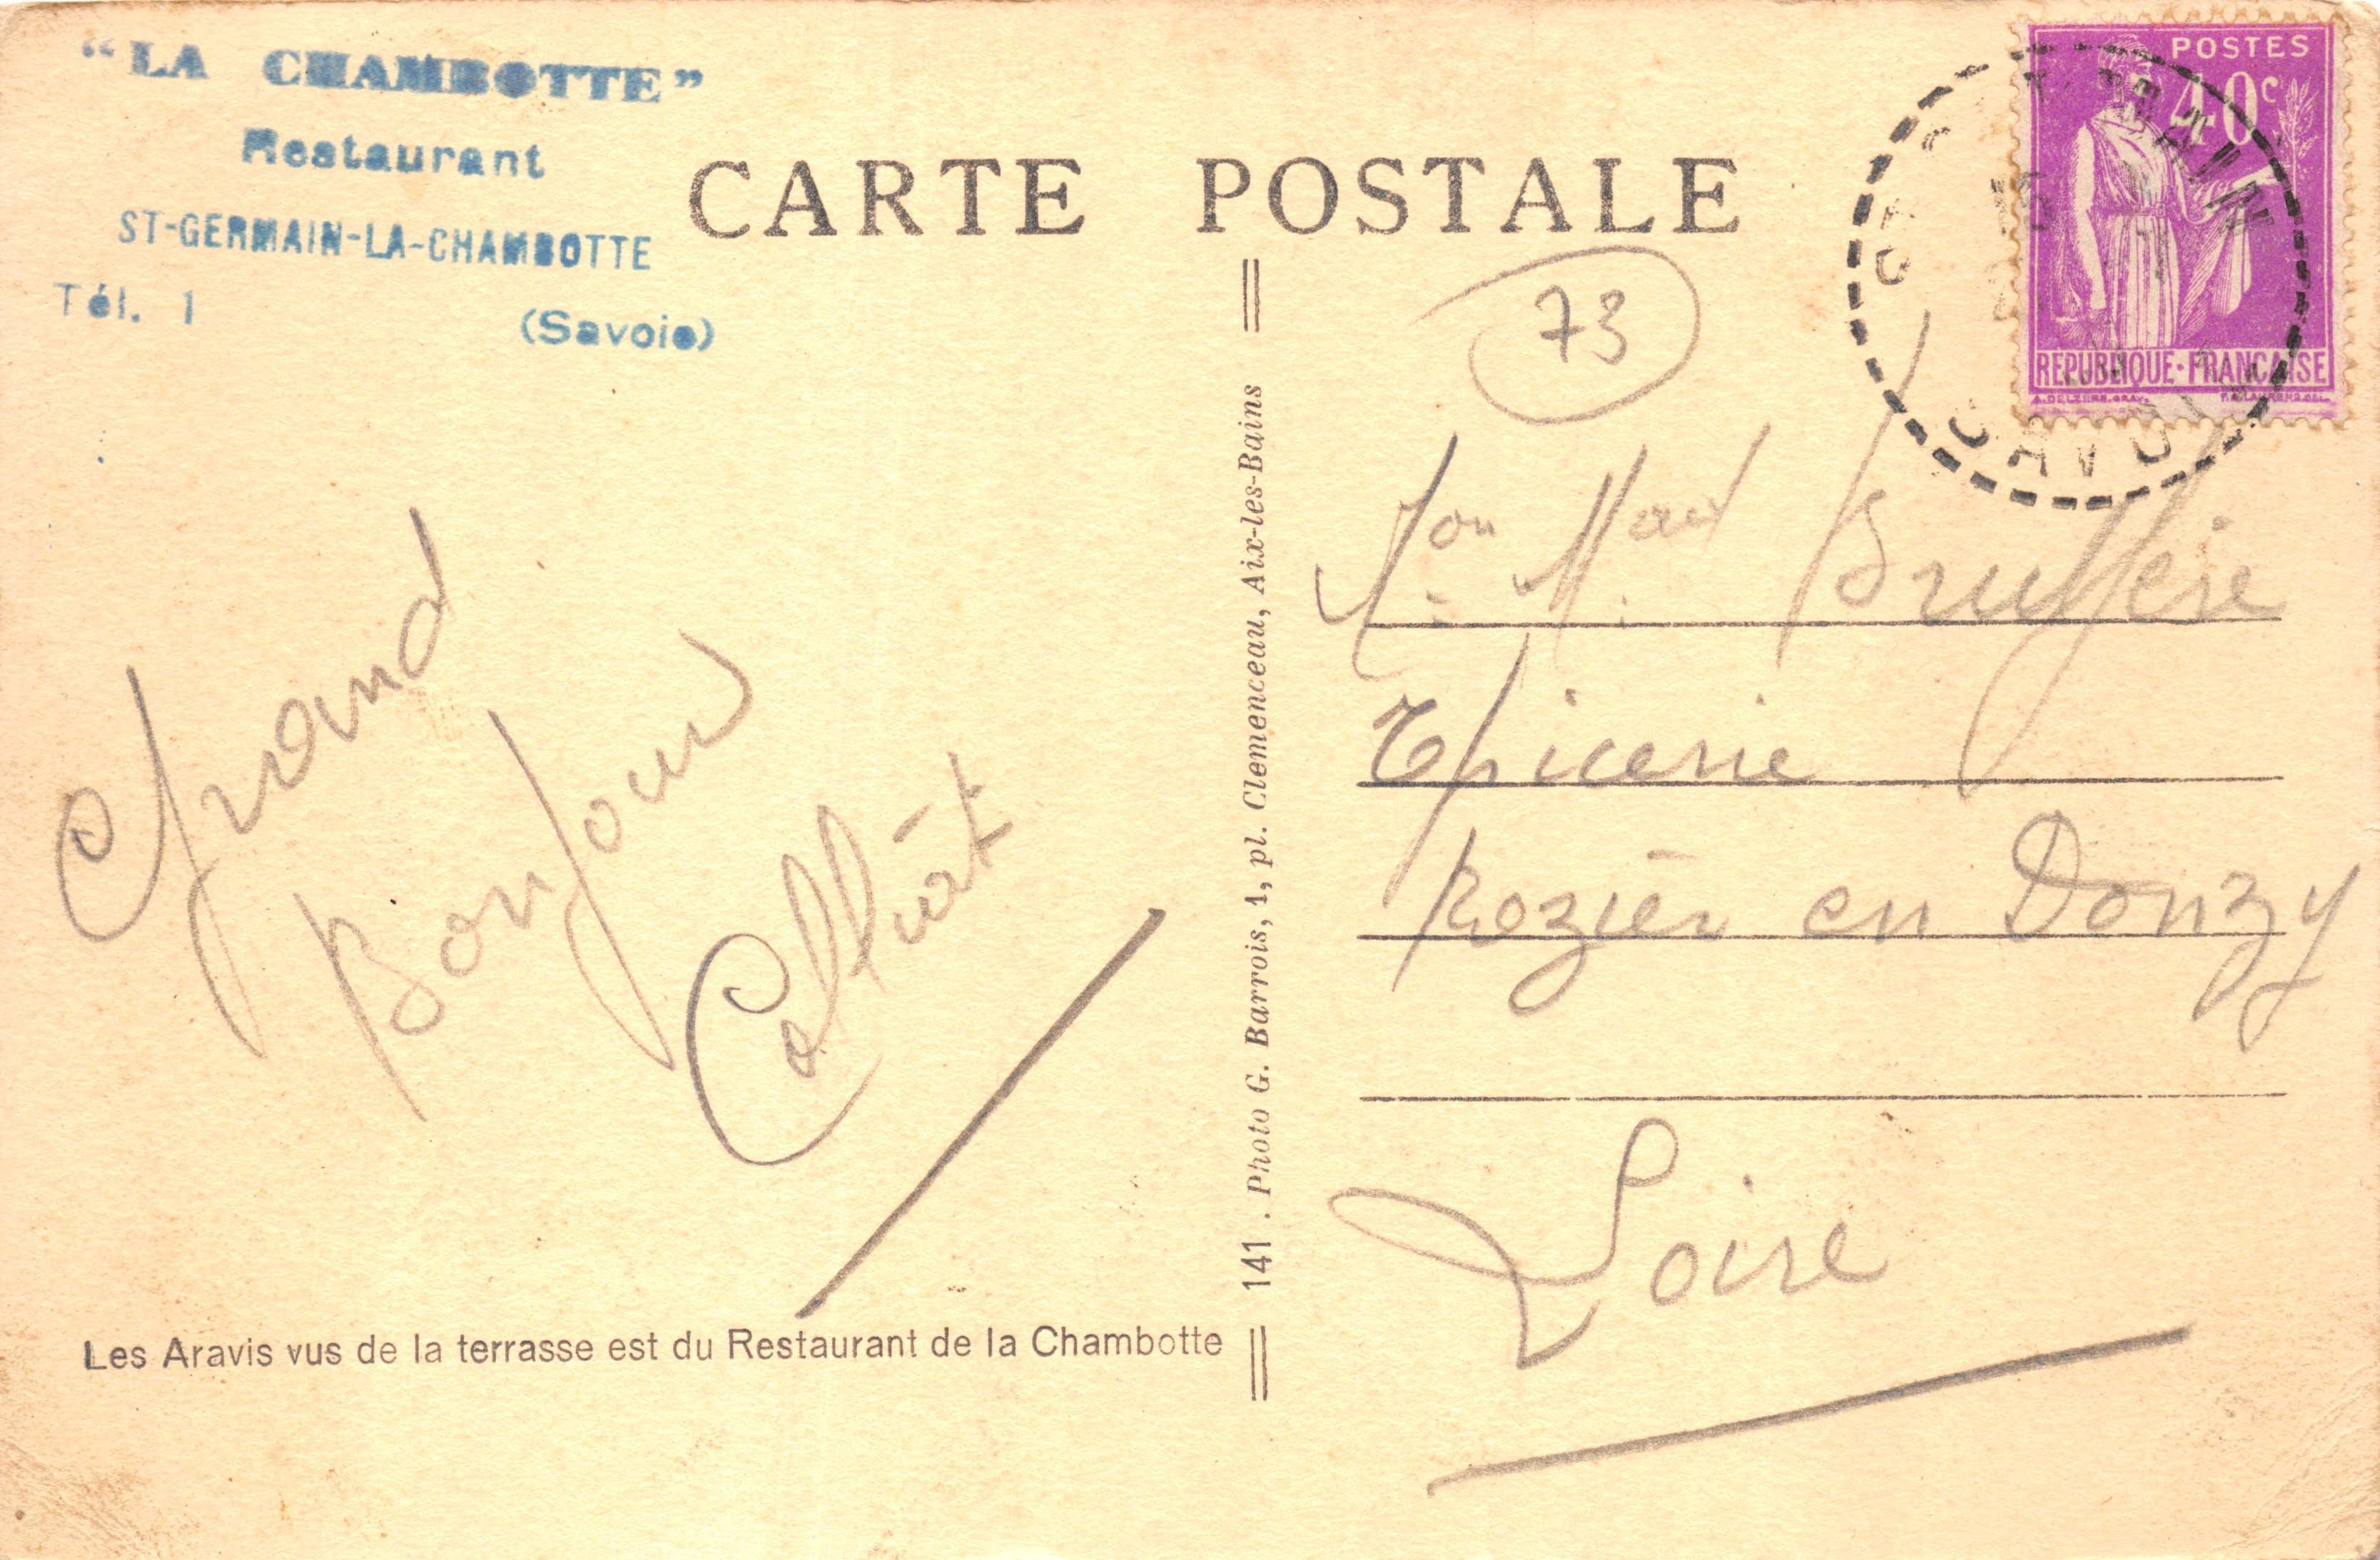 “LA CHAMBOTTE”
Restaurant
ST-GERMAIN-LA-CHAMBOTTE
Tél. 1
(Savoie)
CARTE POSTALE
POSTES
40c
REPUBLIQUE·FRANÇAISE
73
Grand
Bonjour
Les Aravis vus de la terrasse est du Restaurant de la Chambotte
141 . Photo G. Barrois, 1, pl. Clemenceau, Aix-les-Bains
Epicerie
Rozier en Donzy
Loire